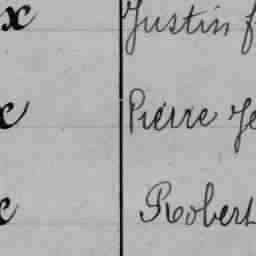 x Justin
x Pierre
x Robert